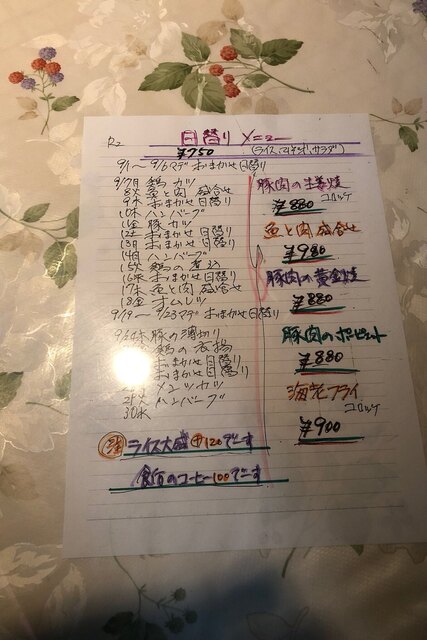 R2 日替り メニュー
¥750 (ライス、みそ汁、サラダ)
9/1〜9/6マデ おまかせ日替り
9/7月 鶏カツ
8火 魚と肉 盛合せ
9水 おまかせ日替り
10木 ハンバーグ
11金 豚カツ
12土 おまかせ日替り
13日 おまかせ日替り
14月 ハンバーグ
15火 鶏の
16水 おまかせ日替り
17木 魚と肉 盛合せ
18金 オムレツ
9/19〜9/23マデ おまかせ日替り
9/24木 豚の薄切り
鶏の衣揚
おまかせ日替り
おまかせ日替り
メンチカツ
29火 ハンバーグ
30水
ライス大盛 ㊉120でーす
食后のコーヒー100でーす
豚肉の生姜焼
コロッケ
¥880
魚と肉盛合せ
¥980
豚肉の黄金焼
¥880
豚肉の
¥880
海老フライ
コロッケ
¥900